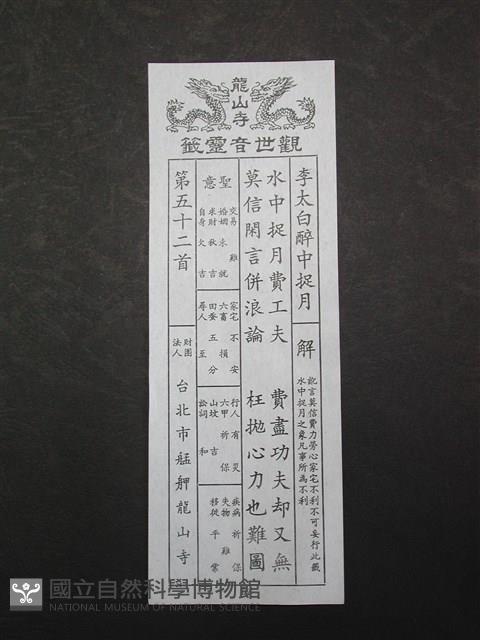 龍山寺
觀世音靈籤
李太白醉中捉月
解
訛言莫信費力勞心家宅不利不可妄行此籤
水中捉月之象凡事所為不利
水中捉月費工夫 費盡功夫却又無
莫信閑言併浪論 枉拋心力也難圖
聖意
交易 難
婚姻 未就
求財 秋吉
自身 欠吉
家宅 不安
六畜 損
田蚕 五分
尋人 至
行人 有災
六甲 祈保
山坟 吉
訟詞 和
疾病 祈保
失物 難
移徙 平常
第五十二首
財團
法人
台北市艋舺龍山寺
國立自然科學博物館
NATIONAL MUSEUM OF NATURAL SCIENCE